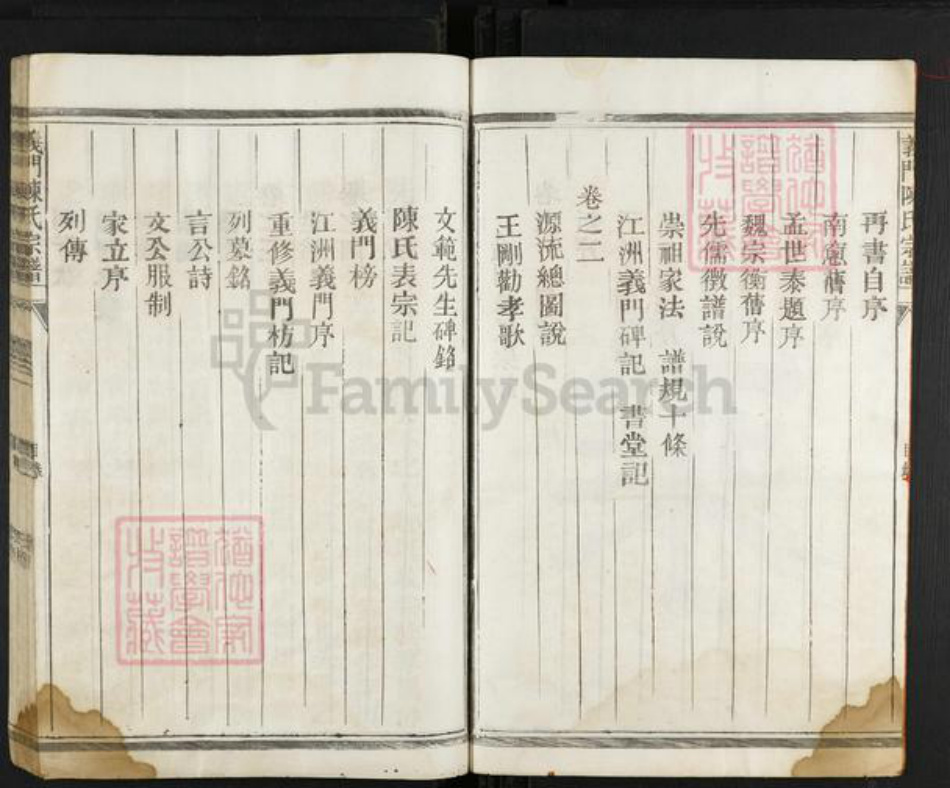 再書自序
南窻舊序
孟世泰題序
魏宗衡舊序
先儒徵譜說
崇祖家法 譜規十條
江洲義門碑記 書堂記
卷之二
源流總圖說
王剛勸孝歌
文範先生碑銘
陳氏表宗記
義門榜
江洲義門序
重修義門枋記
列墓銘
言公詩
文公服制
家立序
列傳
義門陳氏宗譜
FamilySearch
譜學會